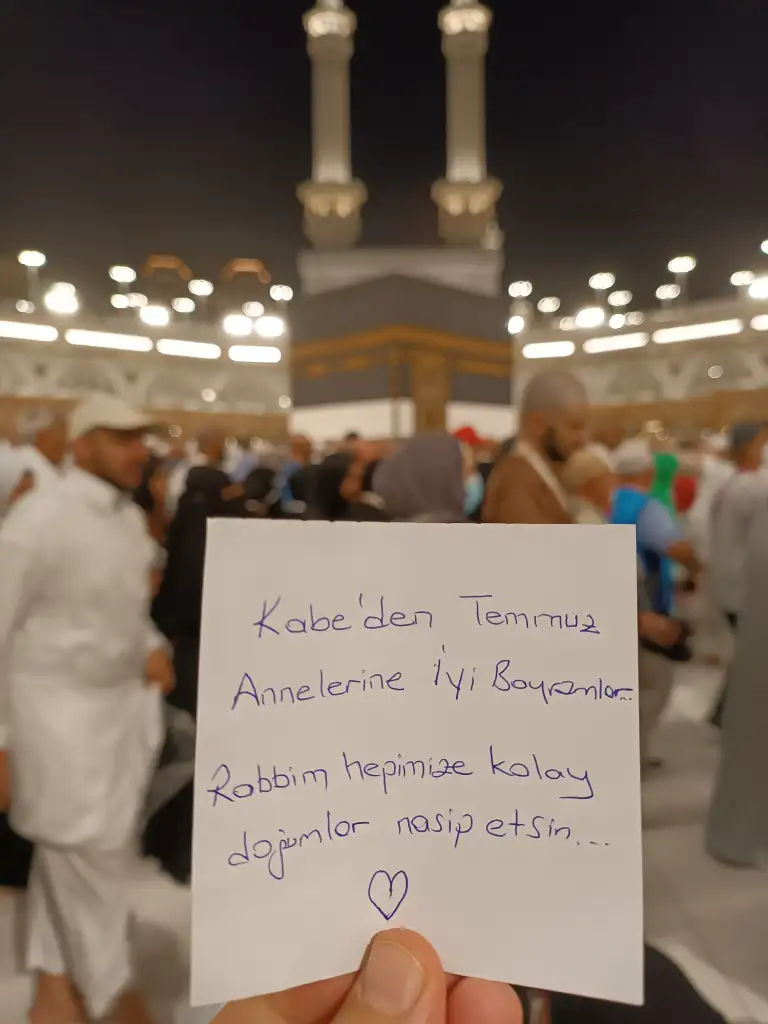 Kabe'den Temmuz
Annelerine İyi Bayramlar...
Rabbim hepimize kolay
doğumlar nasip etsin...